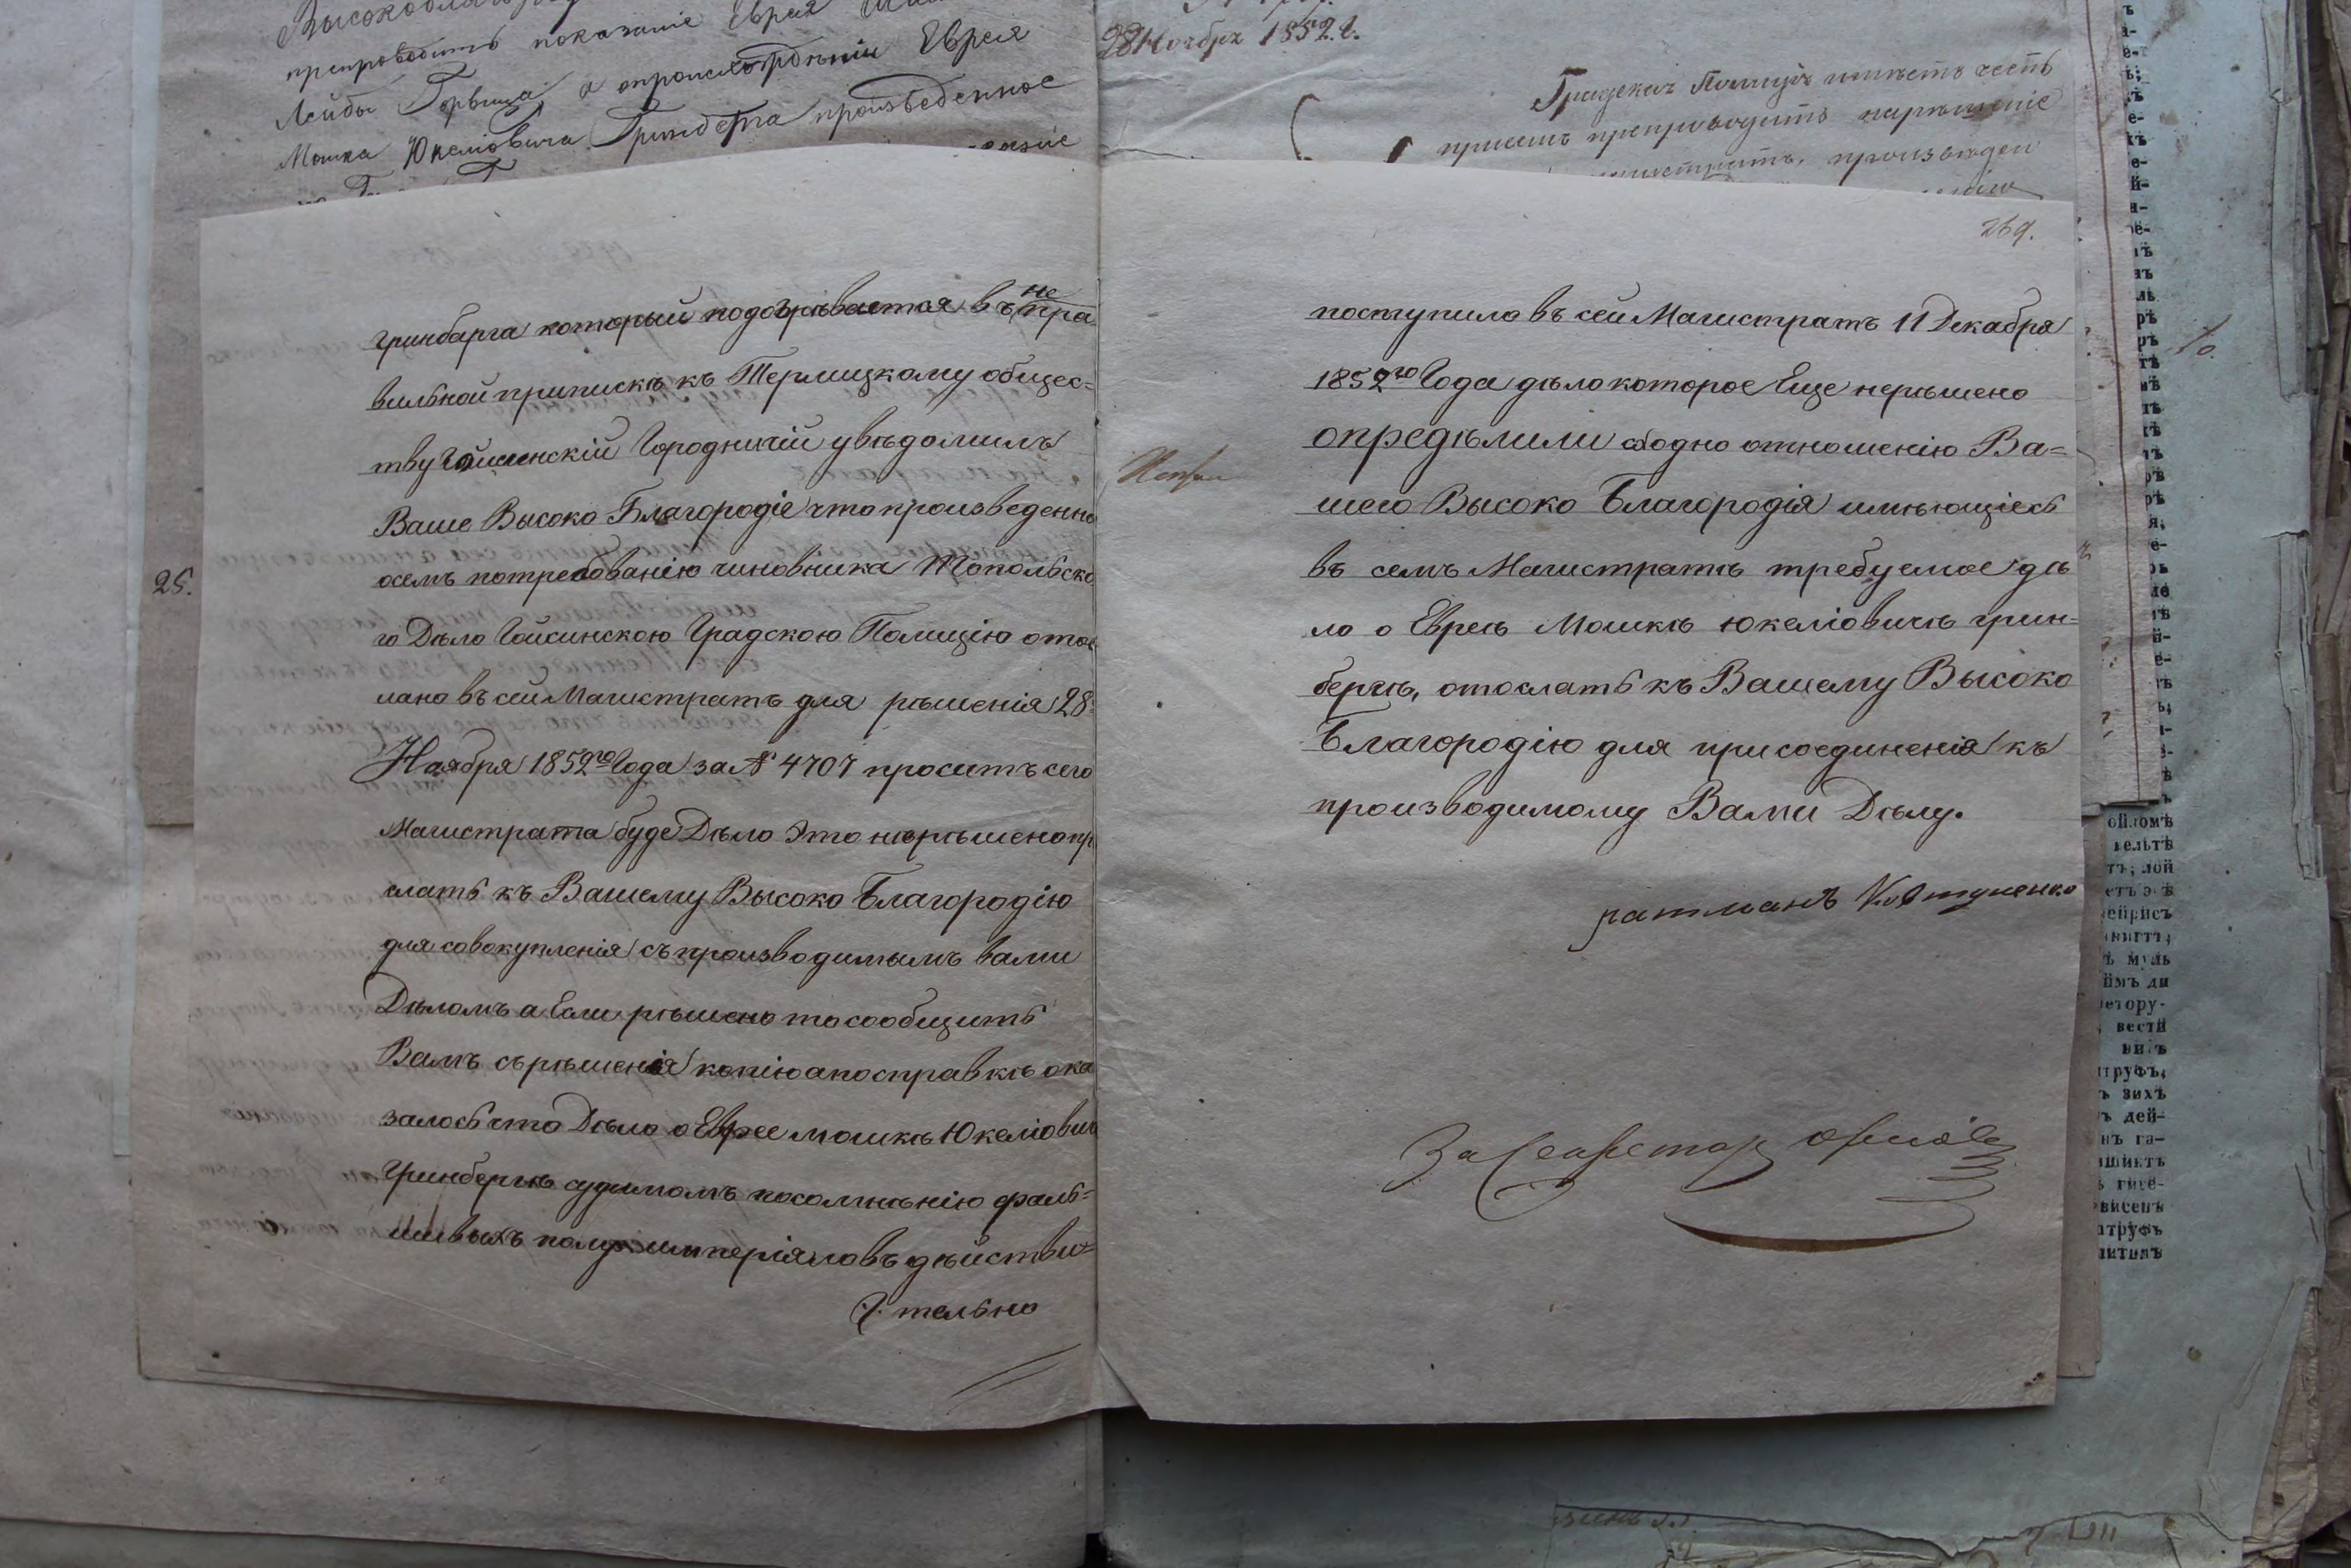 препроводить показаніе Еврея
Лейбы Гервица о происхожденіи Еврея
Мошка Юкеліовича Гринберга произведенное
28 Ноября 1852. г.
Градская Полиція имѣетъ честь
при семъ препроводить нарѣшеніе
25.
гринбарга который подозрѣвается въ не пра
вильной припискѣ къ Термицкому общес=
тву Гайсинскій Городничій увѣдомилъ
Ваше Высоко Благородіе что произведенно
осемъ потребованію чиновника Топольско
го Дѣло Гайсинскою Градскою Полиціею отос
лано въ сей Магистратъ для рѣшенія 28=
Ноября 1852го Года за № 4707 проситъ сего
Магистрата буде Дѣло Это нерѣшено пр
слать къ Вашему Высоко Благородію
для совокупленія съ производимымъ вами
Дѣломъ а Если рѣшено то сообщить
Вамъ съ рѣшенія копію а по справкѣ ока
залось что Дѣло о Еврее мошкѣ Юкеліович
Гринбергѣ судимомъ посомнѣнію фаль=
шивыхъ полуимперіяловъ дѣйстви=
тельно
269.
поступило въ сей Магистратъ 11 Декабря
1852го Года дѣло которое Еще нерѣшено
опредѣлили сходно отношенію Ва=
шего Высоко Благородія имѣющіесь
въ семъ Магистратѣ требуемое дѣ
ло о Евреѣ Мошкѣ Юкеліовичѣ грин=
бергѣ, отослать къ Вашему Высоко
Благородію для присоединенія къ
производимому Вами Дѣлу.
ратманъ
За Секретар